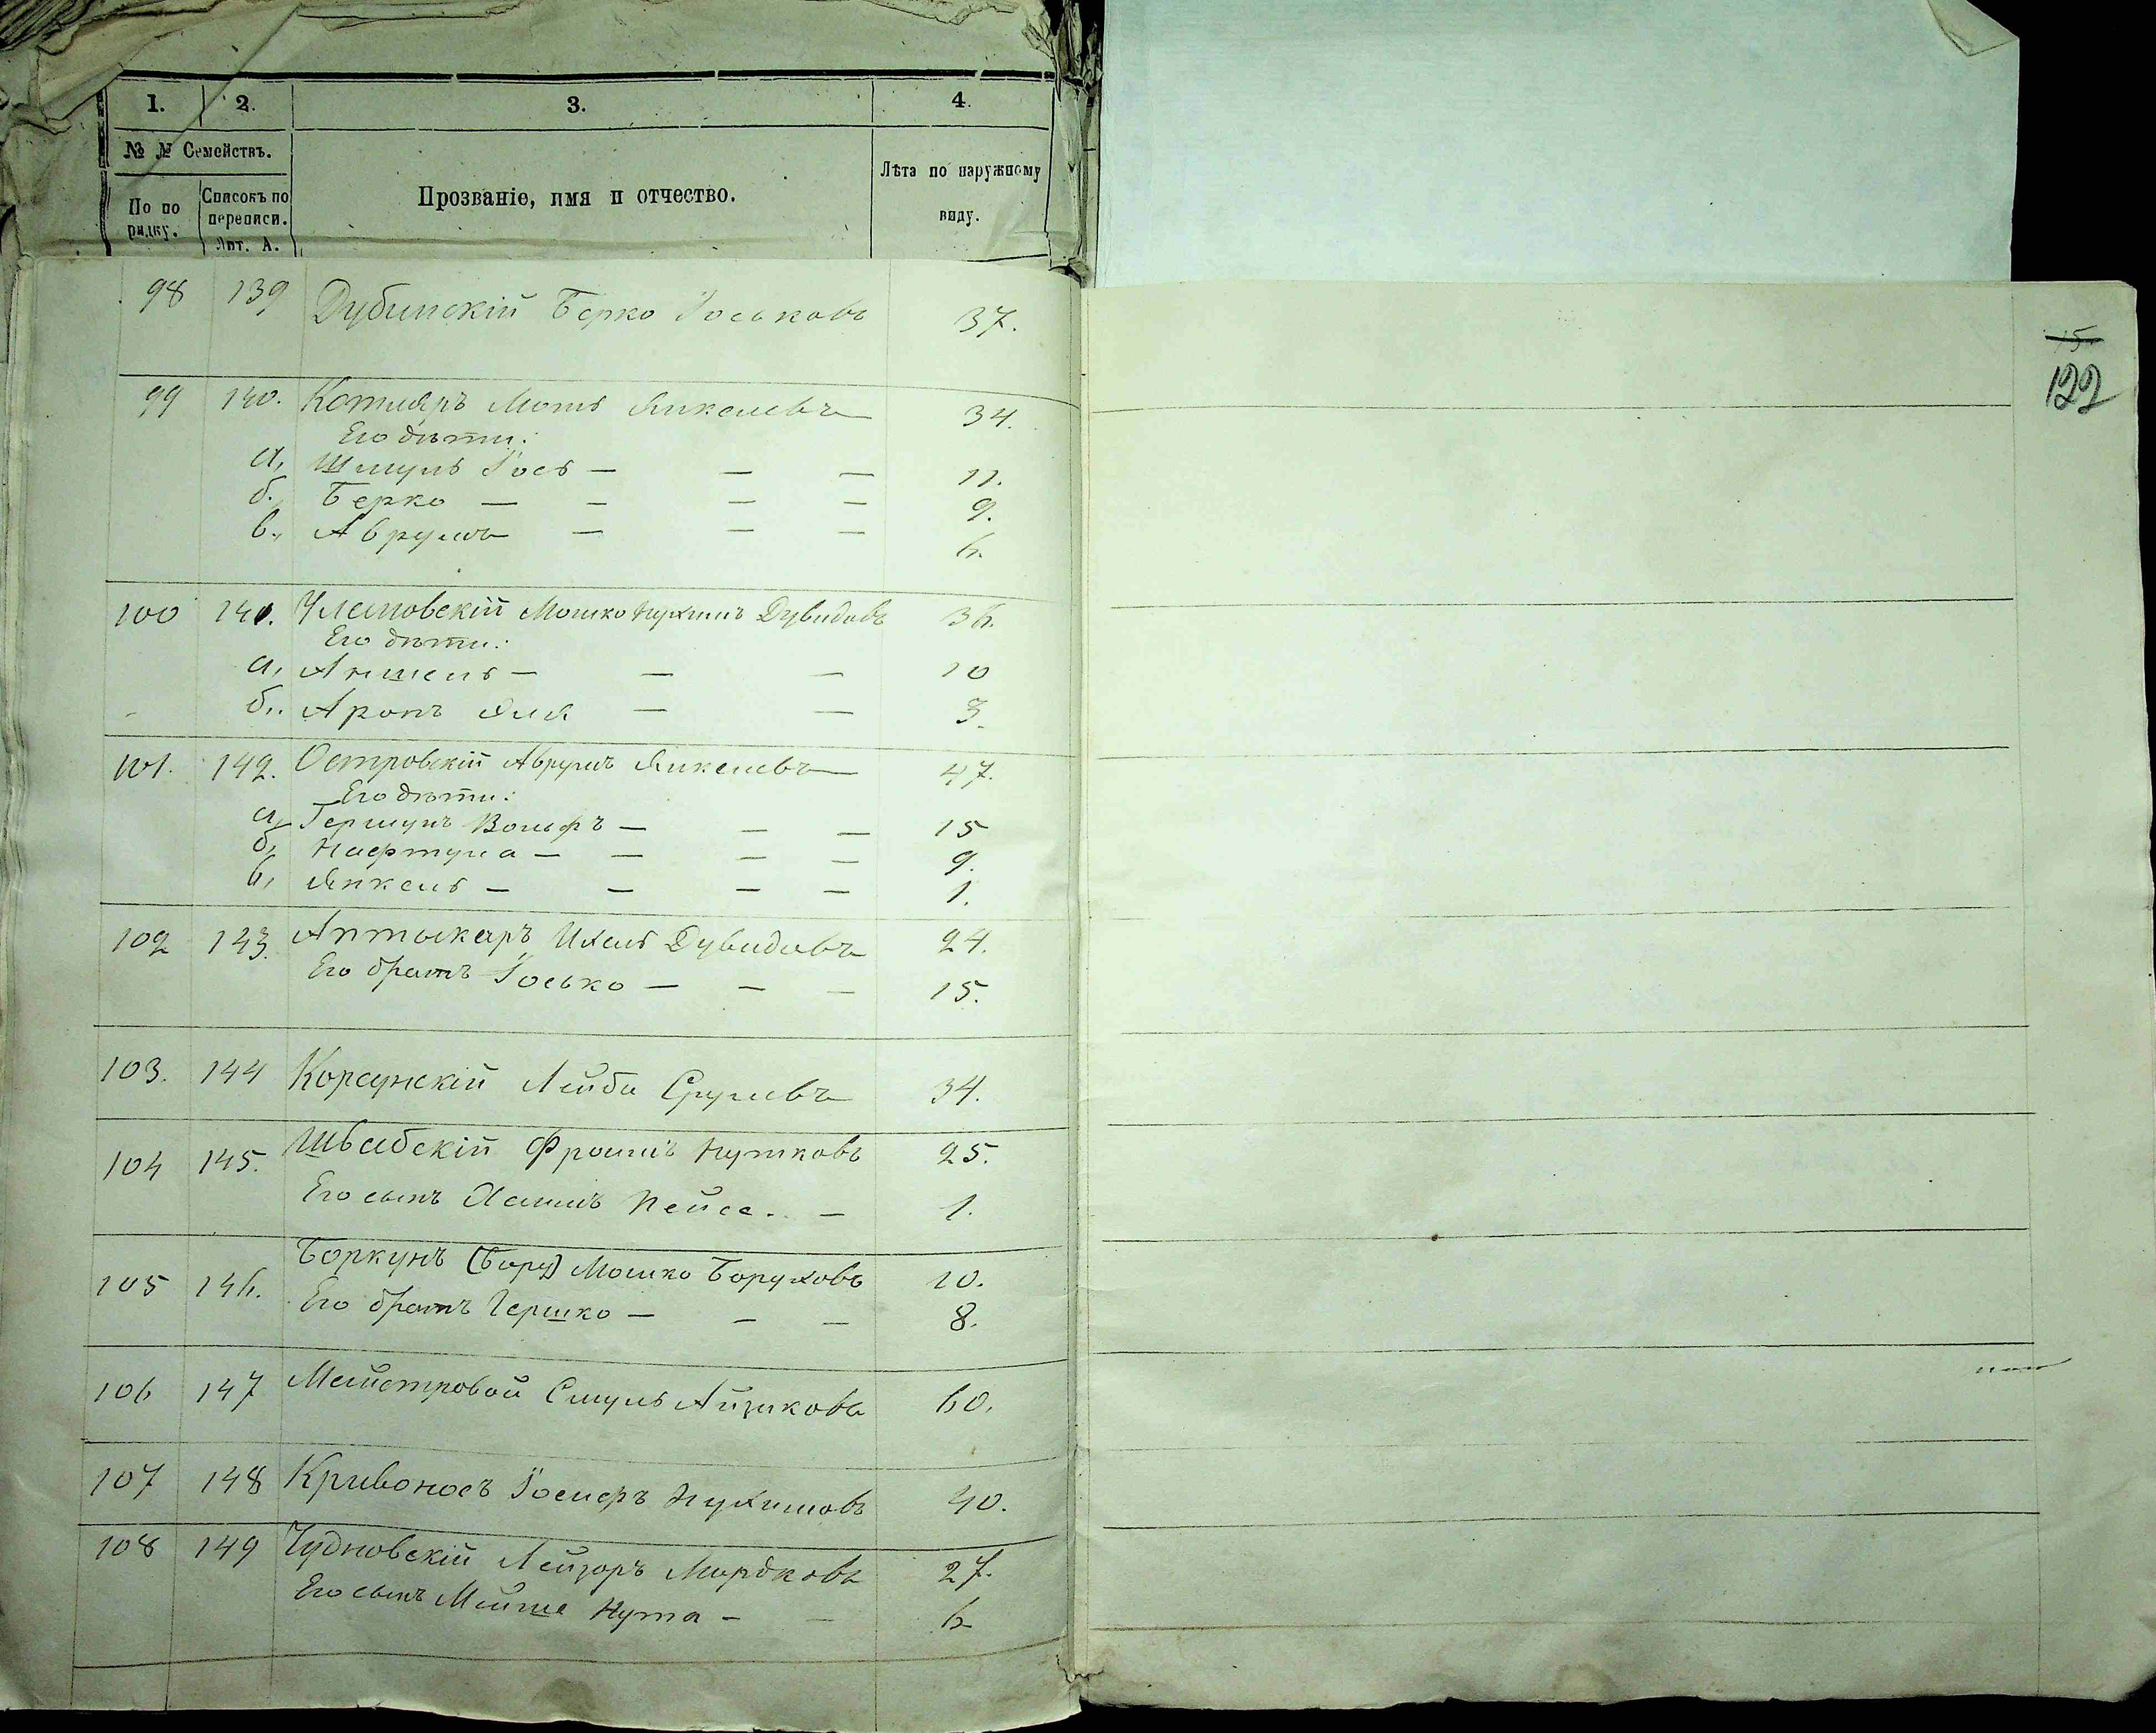 1. 2. 3. 4.
№ № Семействъ.
По по рядку. Списокъ по переписи. Лит. А.
Прозваніе, имя и отчество.
Лѣта по наружному виду.
98 139 Дубинскій Берко Іоськовъ 37.
99 140. Котляръ Моть Янкелевъ 34.
Его дѣти:
а, Шмуль Іось — — — 11.
б., Берко — — — — 9.
в., Аврумъ — — — 6.
100 141. Улемовскій Мошко Нухимъ Дувидовъ 36.
Его дѣти:
а, Аншель — — — 10
б., Аронъ Эля — — 3.
101. 142. Островскій Аврумъ Янкелевъ 47.
Его дѣти:
а, Гершунъ Вольфъ — — — 15
б, Нафтула — — — — 9.
в, Янкель — — — — 1.
102 143. Аптыкаръ Ихель Дувидовъ 24.
Его братъ Іосько — — — 15.
103. 144 Корсунскій Лейба Срулевъ 34.
104 145. Швабскій Фроимъ Нутковъ 25.
Его сынъ Хаимъ Пейсе. — 1.
105 146. Боркунъ (Бору) Мошко Боруховъ 10.
Его братъ Гершко — — — 8.
106 147 Мейстровой Смуль Айзиковъ 60.
107 148 Кривоносъ Іосиеръ Нухимовъ 40.
108 149 Чудновскій Лейзоръ Мордковъ 27.
Его сынъ Мойше Нута — — 6
15.
122